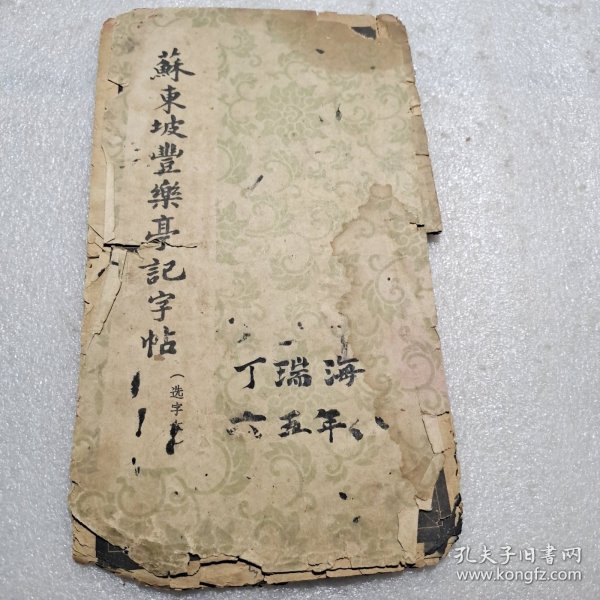 蘇東坡豐樂亭記字帖
（选字本）
丁瑞海
六五年八
孔夫子旧书网
www.kongfz.com